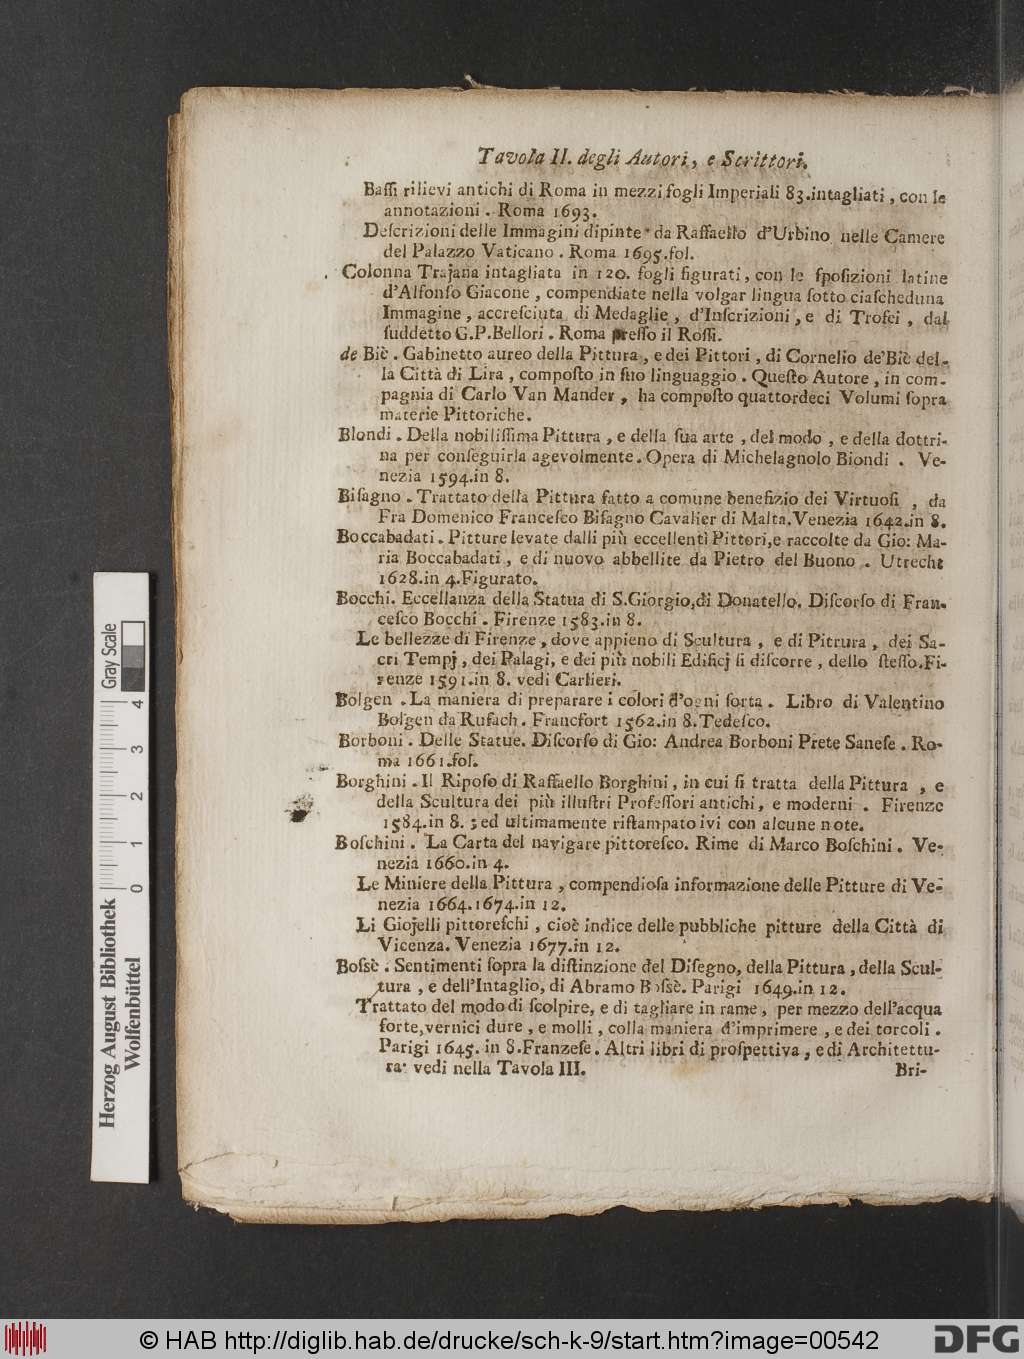 Tavola II. degli Autori, e Scrittori.
Baſſi rilievi antichi di Roma in mezzi fogli Imperiali 83. intagliati, con le
annotazioni. Roma 1693.
Deſcrizioni delle Immagini dipinte da Raffaello d'Urbino nelle Camere
del Palazzo Vaticano. Roma 1695. fol.
Colonna Trajana intagliata in 120. fogli figurati, con le ſpoſizioni latine
d'Alfonſo Giacone, compendiate nella volgar lingua ſotto ciaſcheduna
Immagine, accreſciuta di Medaglie, d'Inſcrizioni, e di Trofei, dal
ſuddetto G. P. Bellori. Roma preſſo il Roſſi.
de Biè. Gabinetto aureo della Pittura, e dei Pittori, di Cornelio de' Biè del-
la Città di Lira, compoſto in ſuo linguaggio. Queſto Autore, in com-
pagnia di Carlo Van Mander, ha compoſto quattordeci Volumi ſopra
materie Pittoriche.
Biondi. Della nobiliſſima Pittura, e della ſua arte, del modo, e della dottri-
na per conſeguirla agevolmente. Opera di Michelagnolo Biondi. Ve-
nezia 1594. in 8.
Biſagno. Trattato della Pittura fatto a comune benefizio dei Virtuoſi, da
Fra Domenico Franceſco Biſagno Cavalier di Malta. Venezia 1642. in 8.
Boccabadati. Pitture levate dalli più eccellenti Pittori, e raccolte da Gio: Ma-
ria Boccabadati, e di nuovo abbellite da Pietro del Buono. Utrecht
1628. in 4. Figurato.
Bocchi. Eccellanza della Statua di S. Giorgio, di Donatello. Diſcorſo di Fran-
ceſco Bocchi. Firenze 1583. in 8.
Le bellezze di Firenze, dove appieno di Scultura, e di Pittura, dei Sa-
cri Tempj, dei Palagi, e dei più nobili Edificj ſi diſcorre, dello ſteſſo. Fi-
renze 1591. in 8. vedi Carlieri.
Bolgen. La maniera di preparare i colori d'ogni ſorta. Libro di Valentino
Bolgen da Rufach. Francfort 1562. in 8. Tedeſco.
Borboni. Delle Statue. Diſcorſo di Gio: Andrea Borboni Prete Saneſe. Ro-
ma 1661. fol.
Borghini. Il Ripoſo di Raffaello Borghini, in cui ſi tratta della Pittura, e
della Scultura dei più illuſtri Profeſſori antichi, e moderni. Firenze
1584. in 8.; ed ultimamente riſtampato ivi con alcune note.
Boſchini. La Carta del navigare pittoreſco. Rime di Marco Boſchini. Ve-
nezia 1660. in 4.
Le Miniere della Pittura, compendioſa informazione delle Pitture di Ve-
nezia 1664. 1674. in 12.
Li Giojelli pittoreſchi, cioè indice delle pubbliche pitture della Città di
Vicenza. Venezia 1677. in 12.
Boſsè. Sentimenti ſopra la diſtinzione del Diſegno, della Pittura, della Scul-
tura, e dell'Intaglio, di Abramo Boſsè. Parigi 1649. in 12.
Trattato del modo di ſcolpire, e di tagliare in rame, per mezzo dell'acqua
forte, vernici dure, e molli, colla maniera d'imprimere, e dei torcoli.
Parigi 1645. in 8. Franzeſe. Altri libri di proſpettiva, e di Architettu-
ra vedi nella Tavola III.
Bri-
Herzog August Bibliothek
Wolfenbüttel
0 1 2 3 4
Gray Scale
© HAB http://diglib.hab.de/drucke/sch-k-9/start.htm?image=00542
DFG